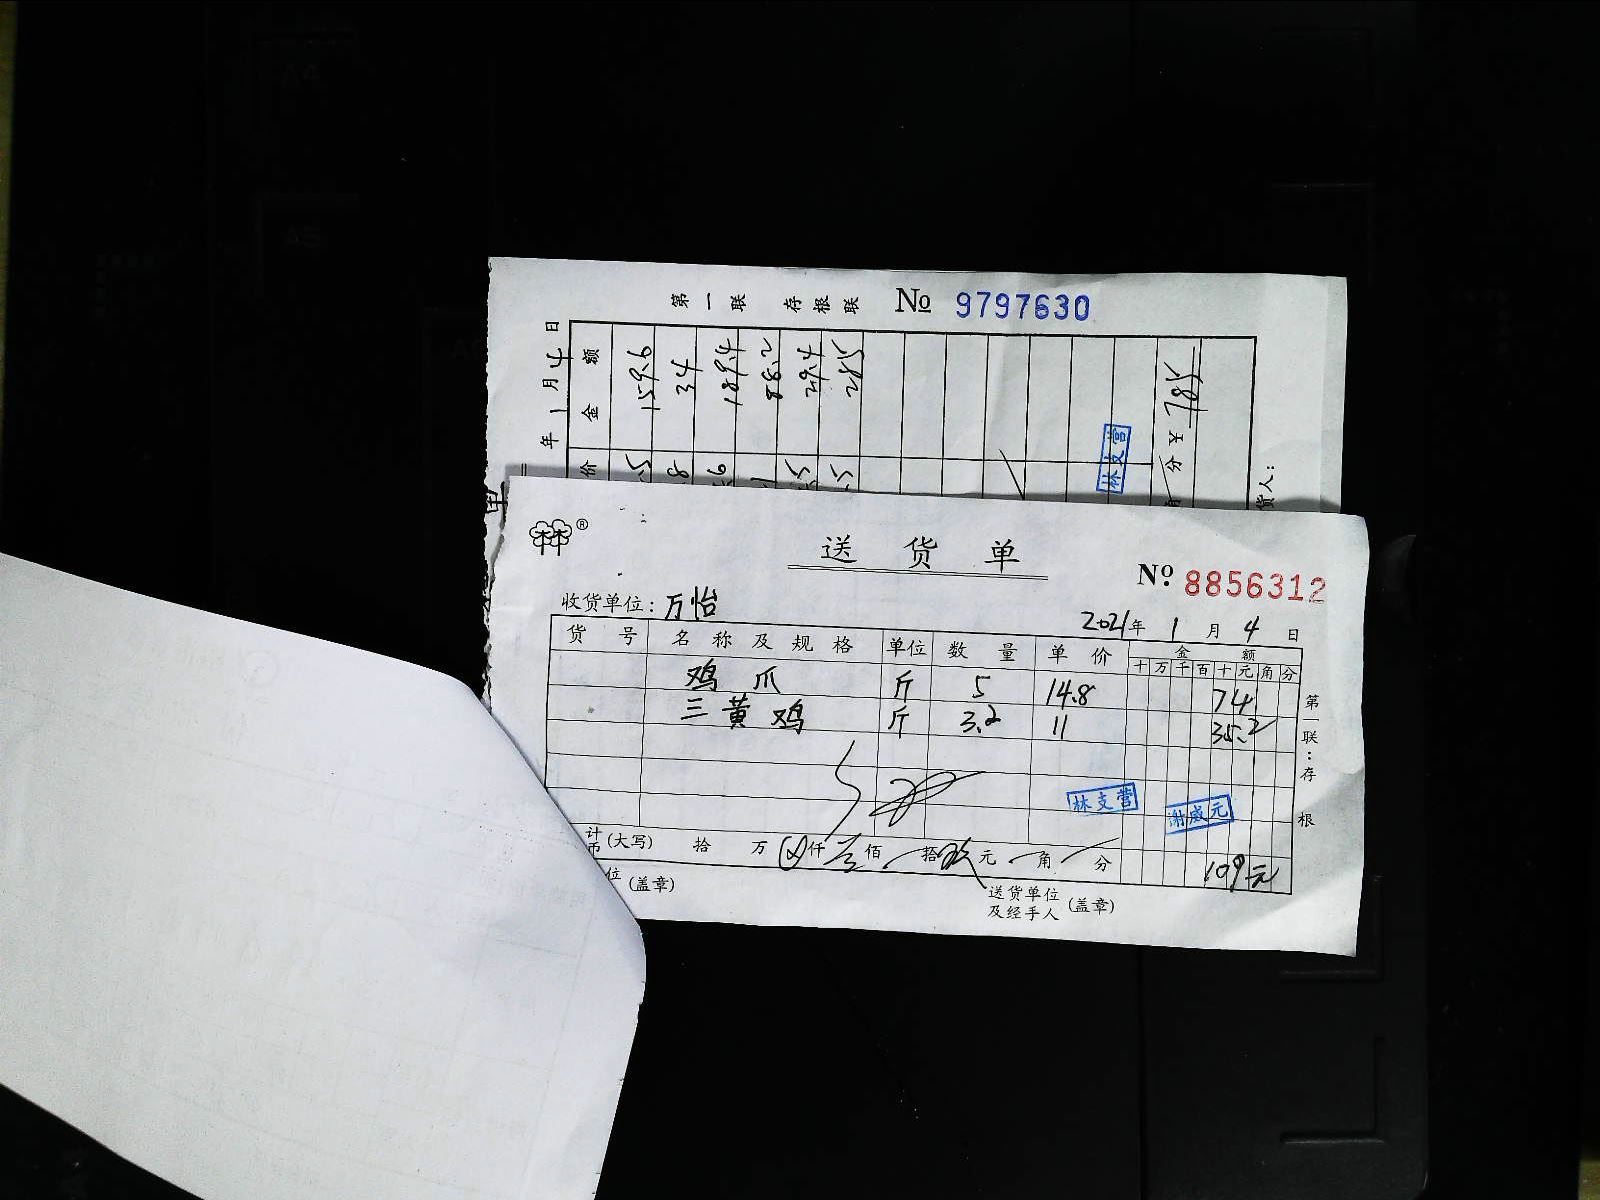 第一联 存根联 No 9797630
年 1 月 4 日
金额
159.6
34
189.4
88.2
29.4
285
价
林支营
分 ¥ 785
货人:
®
送货单
No. 8856312
收货单位: 万怡
2021年 1 月 4 日
货号 名称及规格 单位 数量 单价 金额
十 万 千 百 十 元 角 分
鸡爪 斤 5 14.8 74
三黄鸡 斤 3.2 11 35.2
第一联:存根
林支营 谢威元
计 币 (大写) 拾 万 仟 佰 拾 元 角 分 109元
位 (盖章)
送货单位及经手人 (盖章)